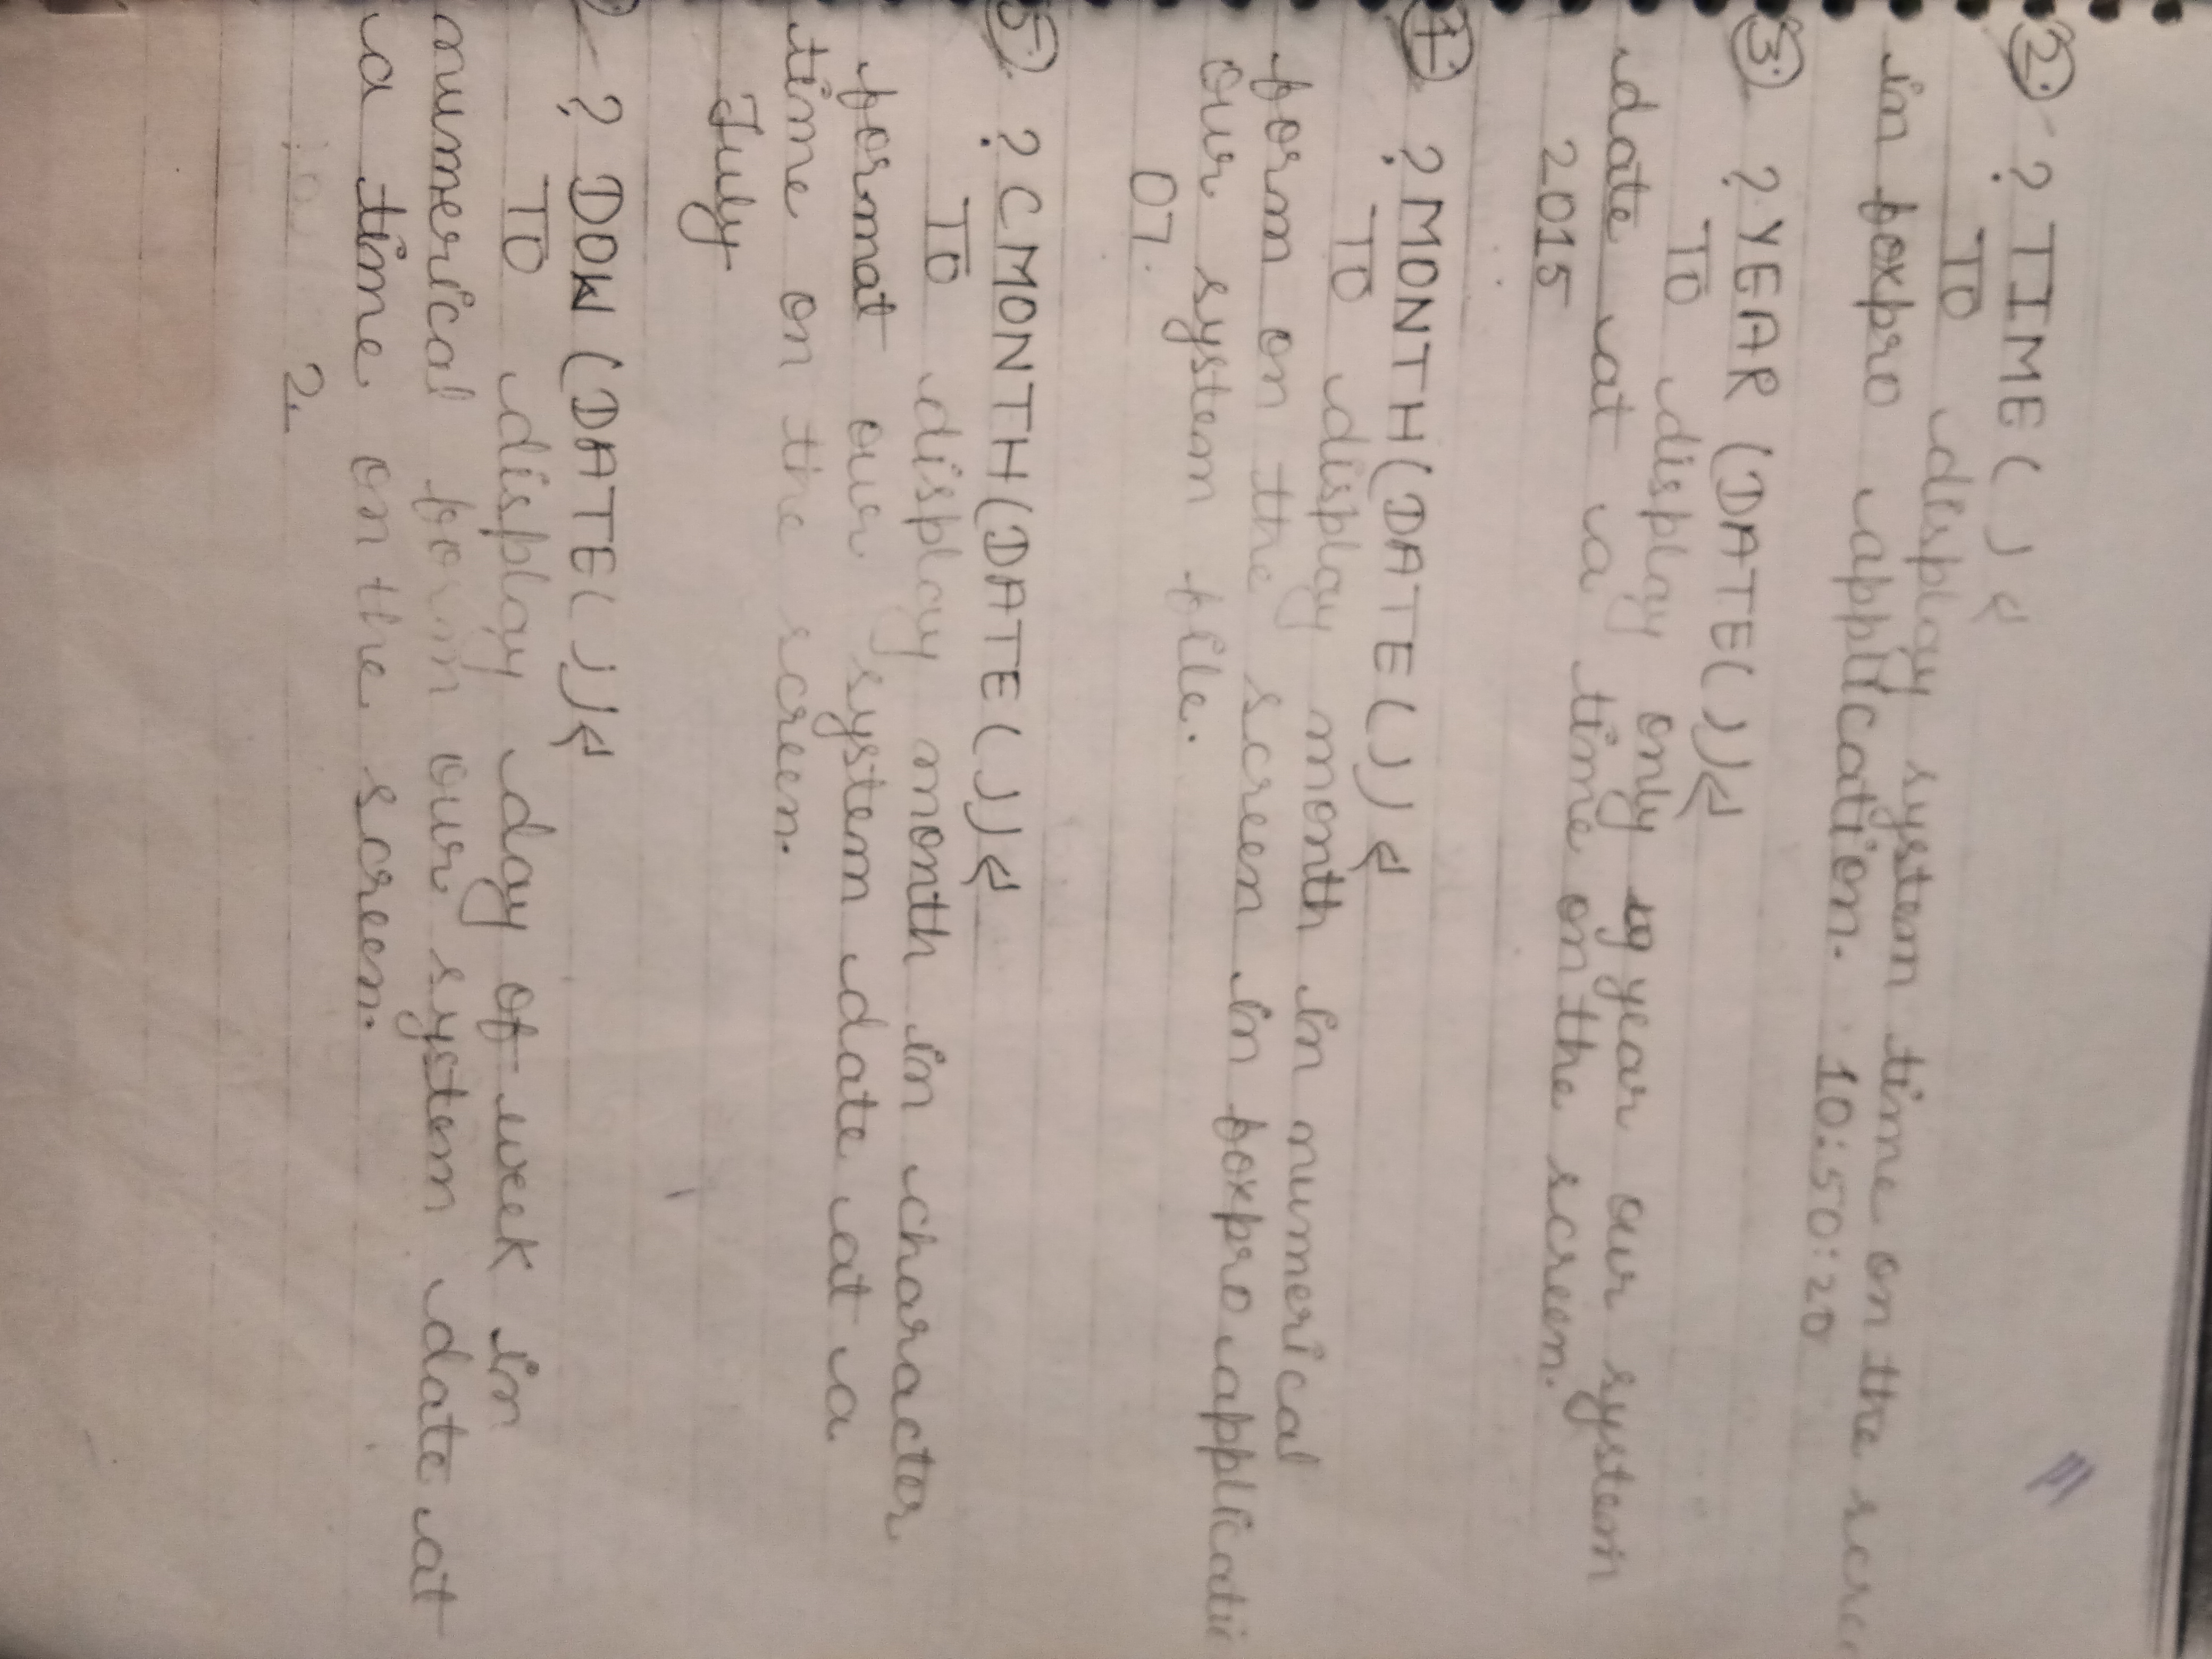 2. ? TIME( ) ↵
TO display system time on the scre
in foxpro application. 10:50:20
3. ? YEAR (DATE( ))↵
TO display only year our system
date at a time on the screen.
2015
4. ? MONTH(DATE( )) ↵
TO display month in numerical
form on the screen in foxpro applicati
our system file.
07.
5. ? CMONTH(DATE( ))↵
TO display month in character
format our system date at a
time on the screen.
July
? DOW (DATE( ))↵
TO display day of week in
numerical form our system date at
a time on the screen.
2.